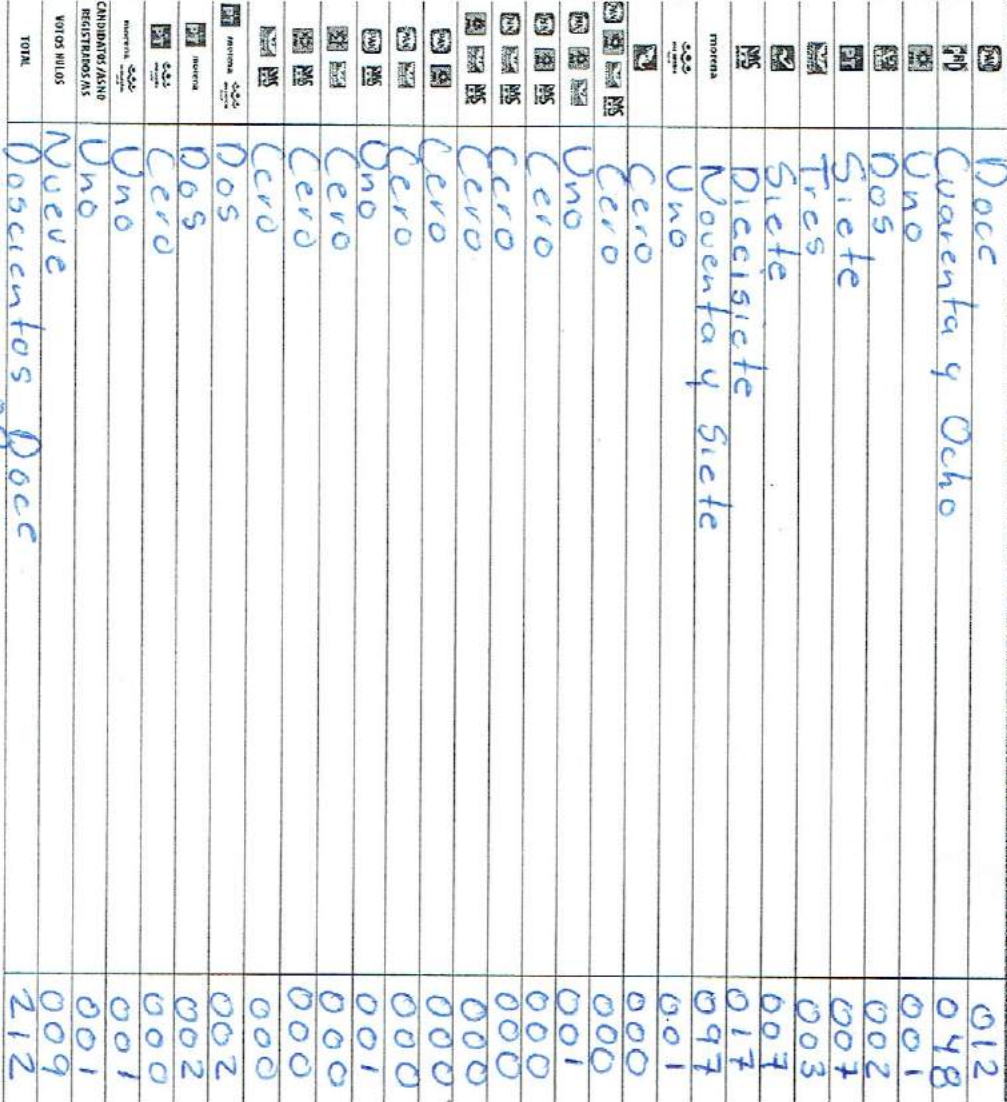 PAN Doce 012
PRI Cuarenta y Ocho 048
Uno 001
Dos 002
Siete 007
Tres 003
Siete 007
Diecisiete 017
morena Noventa y Siete 097
Uno 001
Cero 000
PAN Cero 000
PAN Uno 001
PAN Cero 000
PAN Cero 000
Cero 000
PAN Cero 000
PAN Cero 000
PAN Uno 001
Cero 000
Cero 000
Cero 000
morena Dos 002
morena Dos 002
Cero 000
morena Uno 001
CANDIDATOS/AS NO REGISTRADOS/AS Uno 001
VOTOS NULOS Nueve 009
TOTAL Doscientos Doce 212